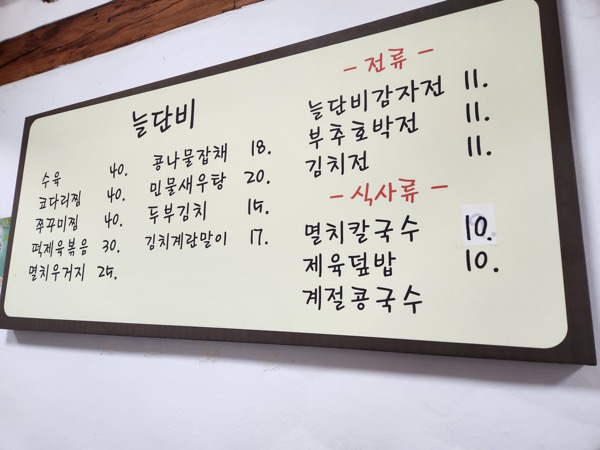 늘단비
수육 40.
코다리찜 40.
쭈꾸미찜 40.
떡제육볶음 30.
멸치우거지 25.
콩나물잡채 18.
민물새우탕 20.
두부김치 15.
김치계란말이 17.
- 전류 -
늘단비감자전 11.
부추호박전 11.
김치전 11.
- 식사류 -
멸치칼국수 10.
제육덮밥 10.
계절콩국수